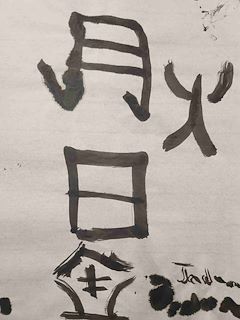 火
月日金